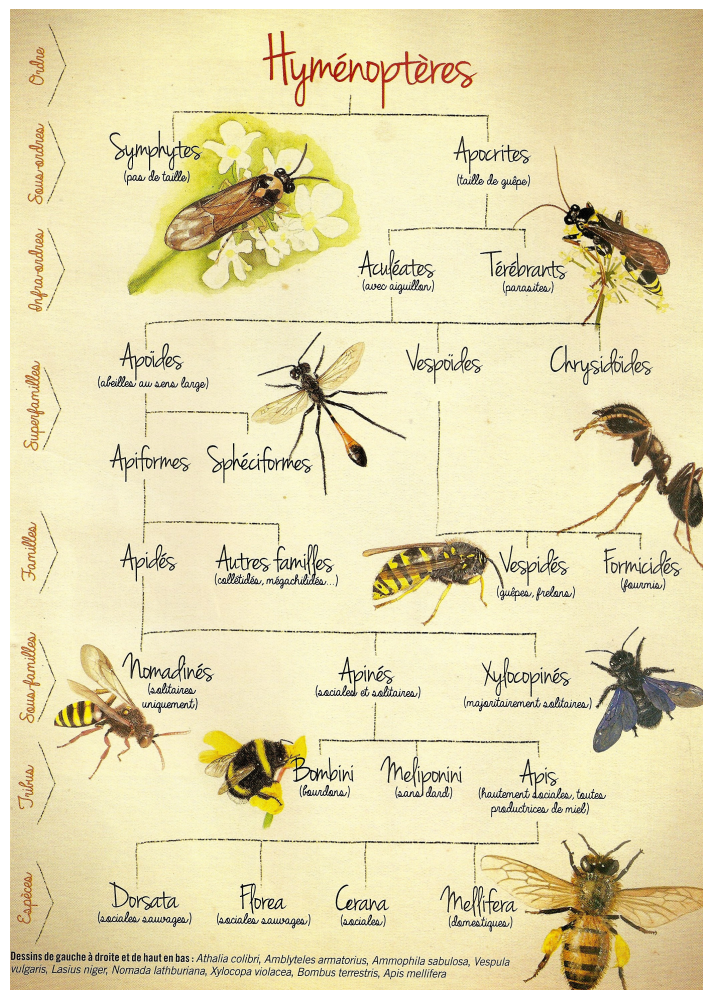 Hyménoptères
Ordre
Sous-ordres
Symphytes
(pas de taille)
Apocrites
(taille de guêpe)
Infra-ordres
Aculéates
(avec aiguillon)
Térébrants
(parasites)
Superfamilles
Apoïdes
(abeilles au sens large)
Vespoïdes
Chrysidoïdes
Apiformes
Sphéciformes
Familles
Apidés
Autres familles
(collétidés, mégachilidés...)
Vespidés
(guêpes, frelons)
Formicidés
(fourmis)
Sous-familles
Nomadinés
(solitaires
uniquement)
Apinés
(sociales et solitaires)
Xylocopinés
(majoritairement solitaires)
Tribus
Bombini
(bourdons)
Meliponini
(sans dard)
Apis
(hautement sociales, toutes
productrices de miel)
Espèces
Dorsata
(sociales sauvages)
Florea
(sociales sauvages)
Cerana
(sociales)
Mellifera
(domestiques)
Dessins de gauche à droite et de haut en bas : Athalia colibri, Amblyteles armatorius, Ammophila sabulosa, Vespula
vulgaris, Lasius niger, Nomada lathburiana, Xylocopa violacea, Bombus terrestris, Apis mellifera